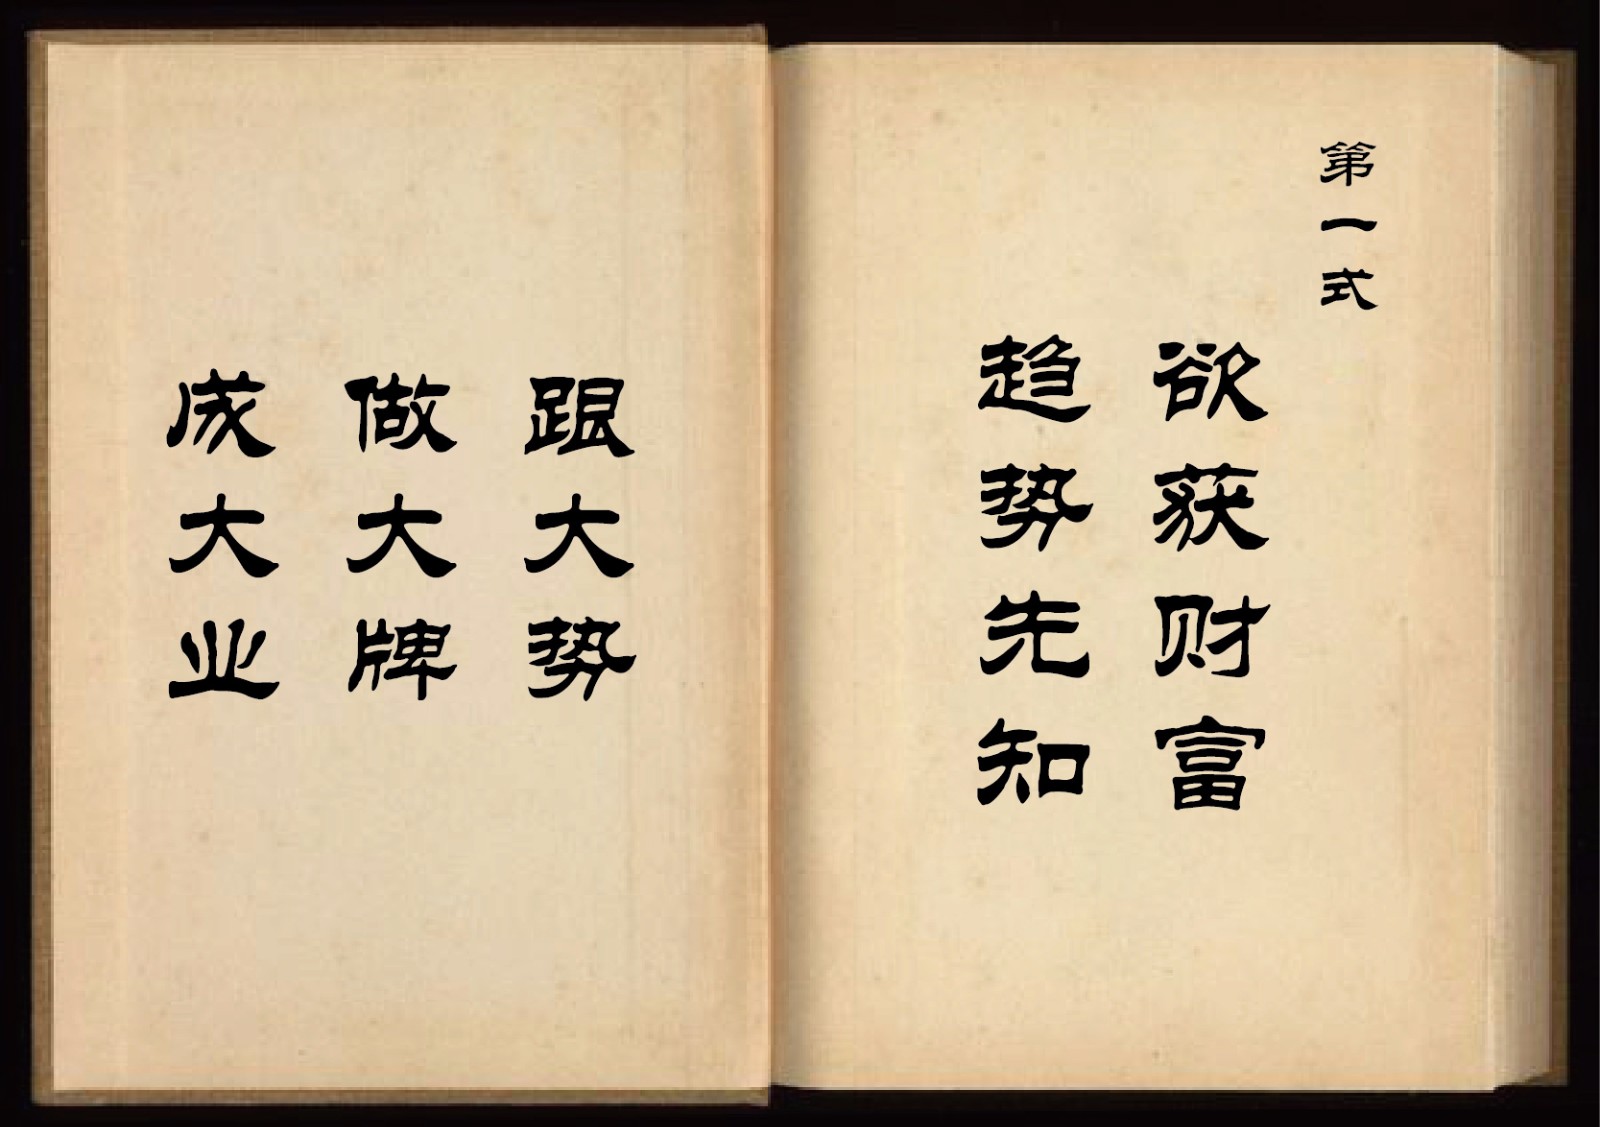 第一式
欲获财富
趋势先知
跟大势
做大牌
成大业